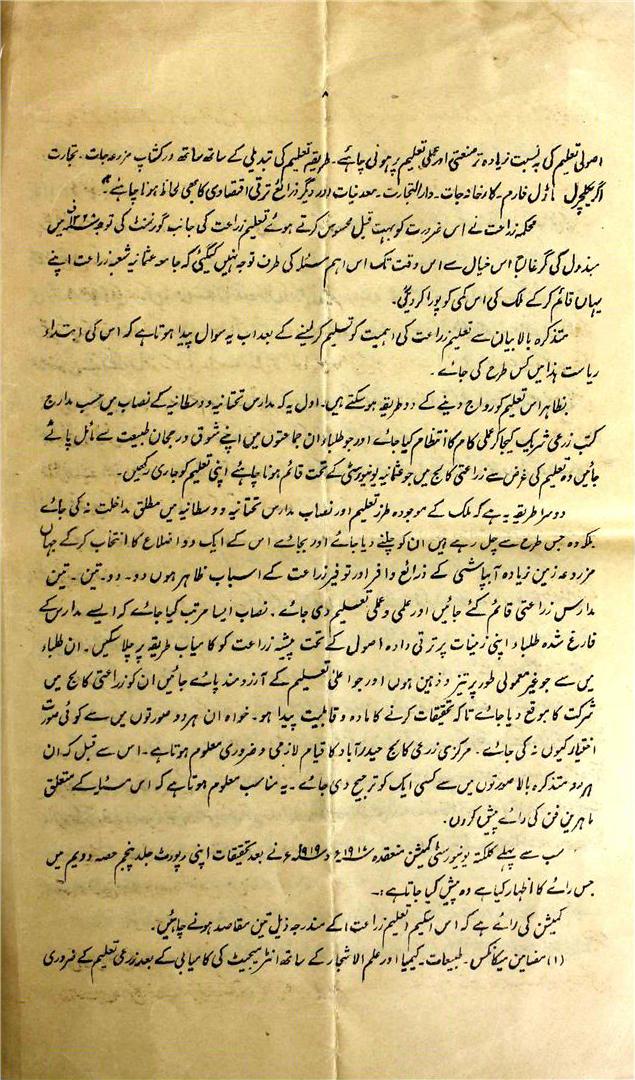 ۸
اصولی تعلیم کی بہ نسبت زیادہ تر صنعتی اور عملی تعلیم پر ہونی چاہئے۔ طریقہ تعلیم کی تبدیلی کے ساتھ ساتھ ورکشاپ مزرعہ جات۔ تجارت
اگریکلچرل ماڈل فارم۔ کارخانہ جات۔ دارالتجارت۔ معدنیات اور دیگر ذرائع ترقی اقتصادی کا بھی لحاظ ہونا چاہئے"
محکمہ زراعت نے اس ضرورت کو بہت قبل محسوس کرتے ہوئے تعلیم زراعت کی جانب گورنمنٹ کی توجہ میں
مبذول کی گر غالباً اس خیال سے اس وقت تک اس اہم مسئلہ کی طرف توجہ نہیں کیگئی کہ جامعہ عثمانیہ شعبہ زراعت اپنے
یہاں قائم کر کے ملک کی اس کمی کو پورا کر دیگی۔
متذکرہ بالا بیان سے تعلیم زراعت کی اہمیت کو تسلیم کر لینے کے بعد اب یہ سوال پیدا ہوتا ہے کہ اس کی ابتداء
ریاست ہذا میں کس طرح کی جائے۔
بظاہر اس تعلیم کو رواج دینے کے دو طریقہ ہو سکتے ہیں۔ اول یہ کہ مدارس تحتانیہ و وسطانیہ کے نصاب میں حسب مدارج
کتب زرعی شریک کیجا کر عملی کام کا انتظام کیا جائے اور جو طلباء ان جماعتوں میں اپنے شوق و رجحان طبیعت سے مائل پائے
جائیں وہ تعلیم کی غرض سے زراعتی کالج میں جو عثمانیہ یونیورسٹی کے تحت قائم ہونا چاہئے اپنی تعلیم کو جاری رکھیں۔
دوسرا طریقہ یہ ہے کہ ملک کے موجودہ طرز تعلیم اور نصاب مدارس تحتانیہ و وسطانیہ میں مطلق مداخلت نہ کی جائے
بلکہ وہ جس طرح سے چل رہے ہیں ان کو چلنے دیا جائے اور بجائے اس کے ایک دو اضلاع کا انتخاب کر کے جہاں
مزروعہ زمین زیادہ آبپاشی کے ذرائع وافر اور توفیر زراعت کے اسباب ظاہر ہوں دو۔ دو۔ تین۔ تین
مدارس زراعتی قائم کئے جائیں اور علمی و عملی تعلیم دی جائے۔ نصاب ایسا مرتب کیا جائے کہ ایسے مدارس کے
فارغ شدہ طلباء اپنی زمینات پر ترقی دادہ اصول کے تحت پیشہ زراعت کو کامیاب طریقہ پر چلا سکیں۔ ان طلباء
میں سے جو غیر معمولی طور پر تیز و ذہین ہوں اور جو اعلیٰ تعلیم کے آرزو مند پائے جائیں ان کو زراعتی کالج میں
شرکت کا موقع دیا جائے تاکہ تحقیقات کرنے کا مادہ و قابلیت پیدا ہو۔ خواہ ان ہر دو صورتوں میں سے کوئی صورت
اختیار کیوں نہ کی جائے۔ مرکزی زرعی کالج حیدرآباد کا قیام لازمی و ضروری معلوم ہوتا ہے۔ اس سے قبل کہ ان
ہر دو متذکرہ بالا صورتوں میں سے کسی ایک کو ترجیح دی جائے۔ یہ مناسب معلوم ہوتا ہے کہ اس مسئلہ کے متعلق
ماہرین فن کی رائے پیش کروں۔
سب سے پہلے کلکتہ یونیورسٹی کمیشن منعقدہ ۱۹۱۷ء و ۱۹۱۹ء نے بعد تحقیقات اپنی رپورٹ جلد پنجم حصہ دویم میں
جس رائے کا اظہار کیا ہے وہ پیش کیا جاتا ہے:۔
کمیشن کی رائے ہے کہ اس اسکیم (تعلیم زراعت) کے مندرجہ ذیل تین مقاصد ہونے چاہئیں۔
(۱) مضامین میکانکس۔ طبیعات۔ کیمیا اور علم الاشجار کے ساتھ انٹرمیجیٹ کی کامیابی کے بعد زرعی تعلیم کے ضروری